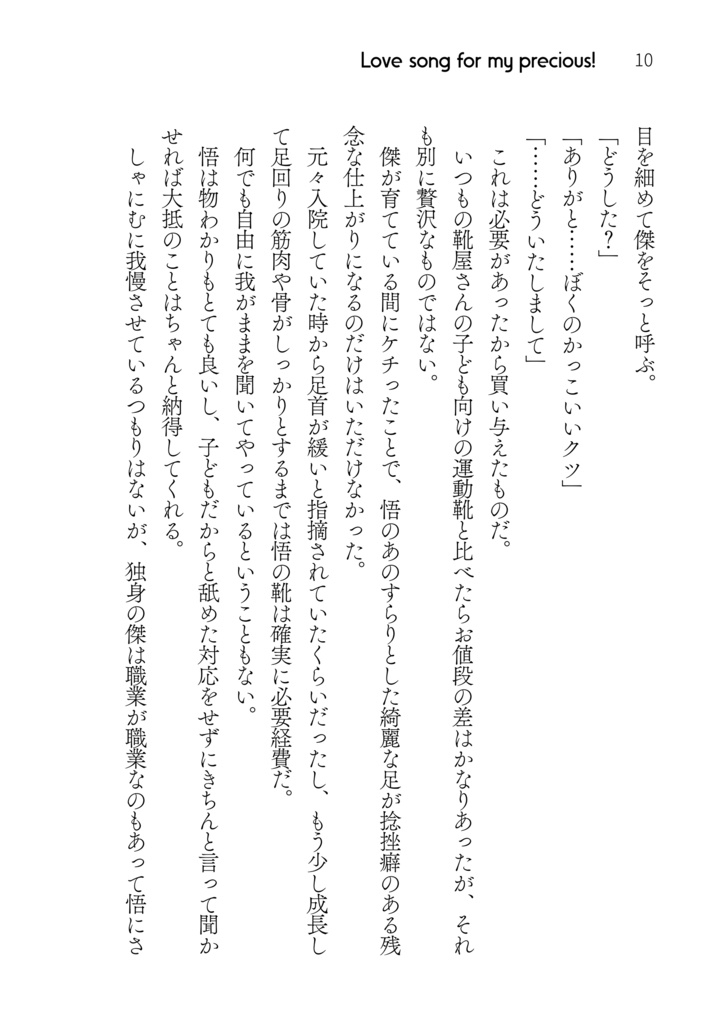 Love song for my precious! 10
目を細めて傑をそっと呼ぶ。
「どうした？」
「ありがと……ぼくのかっこいいクツ」
「……どういたしまして」
これは必要があったから買い与えたものだ。
いつもの靴屋さんの子ども向けの運動靴と比べたらお値段の差はかなりあったが、それ
も別に贅沢なものではない。
傑が育てている間にケチったことで、悟のあのすらりとした綺麗な足が捻挫癖のある残
念な仕上がりになるのだけはいただけなかった。
元々入院していた時から足首が緩いと指摘されていたくらいだったし、もう少し成長し
て足回りの筋肉や骨がしっかりとするまでは悟の靴は確実に必要経費だ。
何でも自由に我がままを聞いてやっているということもない。
悟は物わかりもとても良いし、子どもだからと舐めた対応をせずにきちんと言って聞か
せれば大抵のことはちゃんと納得してくれる。
しゃにむに我慢させているつもりはないが、独身の傑は職業が職業なのもあって悟にさ